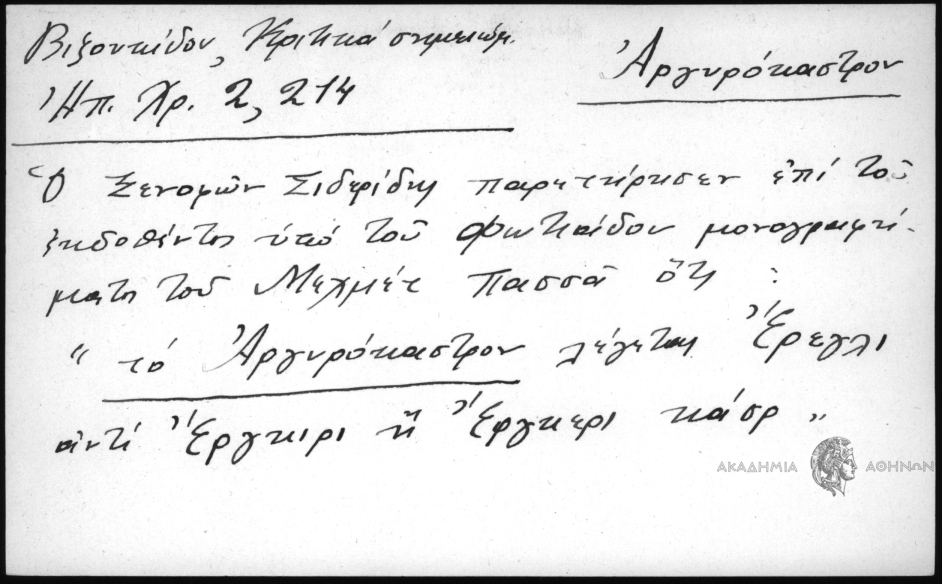 Βιζουκίδου, Κριτικά σημειώμ.
Ἠπ. Χρ. 2, 214
Ἀργυρόκαστρον
Ὁ Ξενοφῶν Σιδερίδης παρετήρησεν ἐπί τοῦ
ἐκδοθέντος ὑπό τοῦ μονογραφή-
ματος τοῦ Μεχμέτ Πασσᾶ ὅτι :
" τό Ἀργυρόκαστρον λέγεται Ἐρεγλι
ἀντί Ἐργκιρι ἤ Ἐργκερι κάσρ "
ΑΚΑΔΗΜΙΑ ΑΘΗΝΩΝ